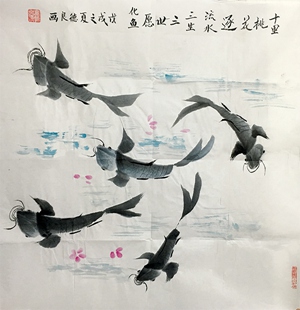 十里
桃
花
逐
流水
三生
三
世
愿
化鱼
戊戌之夏德良画